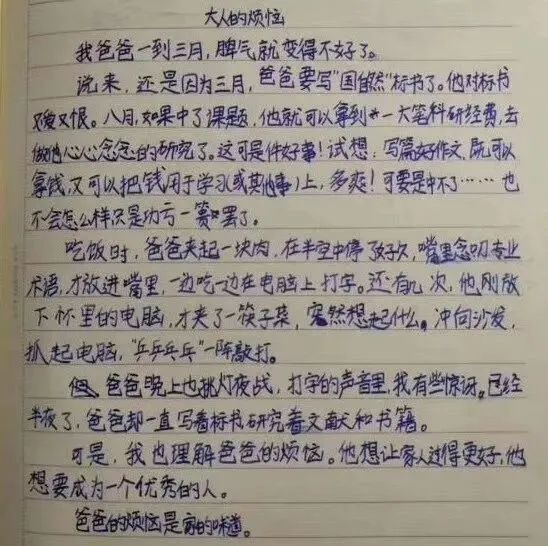 大人的烦恼
我爸爸一到三月,脾气就变得不好了。
说来,还是因为三月,爸爸要写“国自然”标书了。他对标书
又爱又恨。八月,如果中了课题,他就可以拿到一大笔科研经费,去
做他心心念念的研究了。这可是件好事!试想:写篇好作文,既可以
拿钱,又可以把钱用于学习(或其他事)上,多爽!可要是中不了……也
不会怎么样只是功亏一篑罢了。
吃饭时,爸爸夹起一块肉,在半空中停了好久,嘴里念叨专业
术语,才放进嘴里,一边吃一边在电脑上打字。还有几次,他刚放
下怀里的电脑,才夹了一筷子菜,突然想起什么,冲向沙发,
抓起电脑,“乒乒乓乓”一阵敲打。
爸爸晚上也挑灯夜战,打字的声音里我有些惊讶。已经
半夜了,爸爸却一直写着标书研究着文献和书籍。
可是,我也理解爸爸的烦恼。他想让家人过得更好,他
想要成为一个优秀的人。
爸爸的烦恼是家的味道。